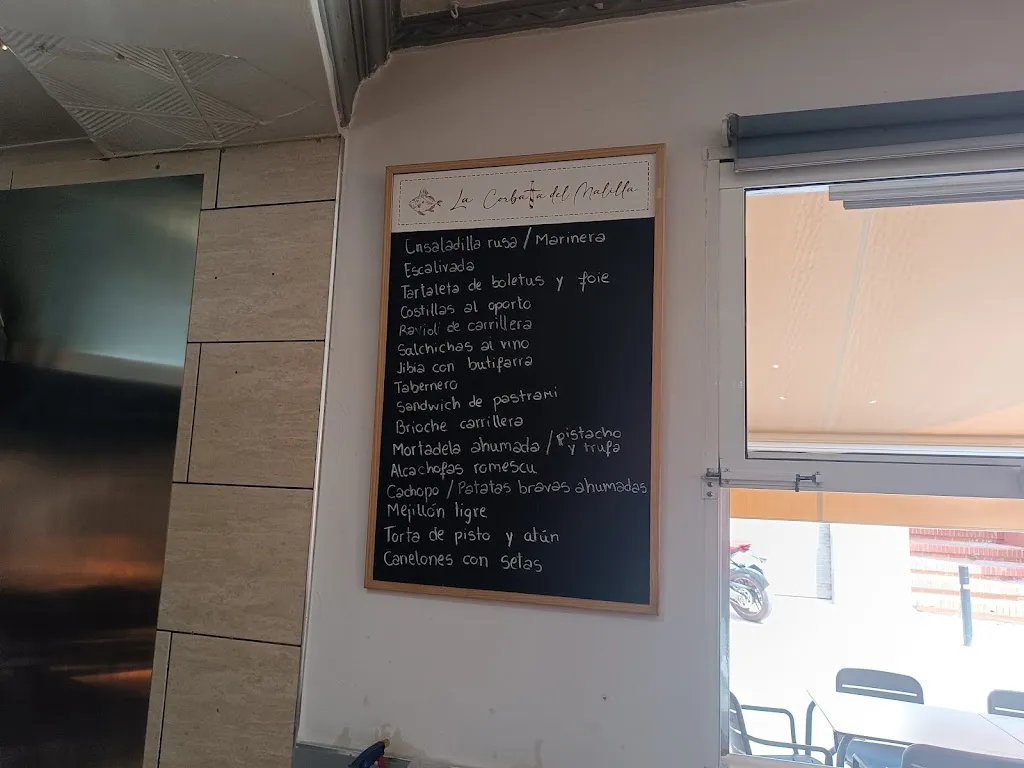 La Corbata del Malilla
Ensaladilla rusa / Marinera
Escalivada
Tartaleta de boletus y foie
Costillas al oporto
Ravioli de carrillera
Salchichas al vino
Jibia con butifarra
Tabernero
Sandwich de pastrami
Brioche carrillera
Mortadela ahumada / pistacho
y trufa
Alcachofas romescu
Cachopo / Patatas bravas ahumadas
Mejillón ligre
Torta de pisto y atún
Canelones con setas